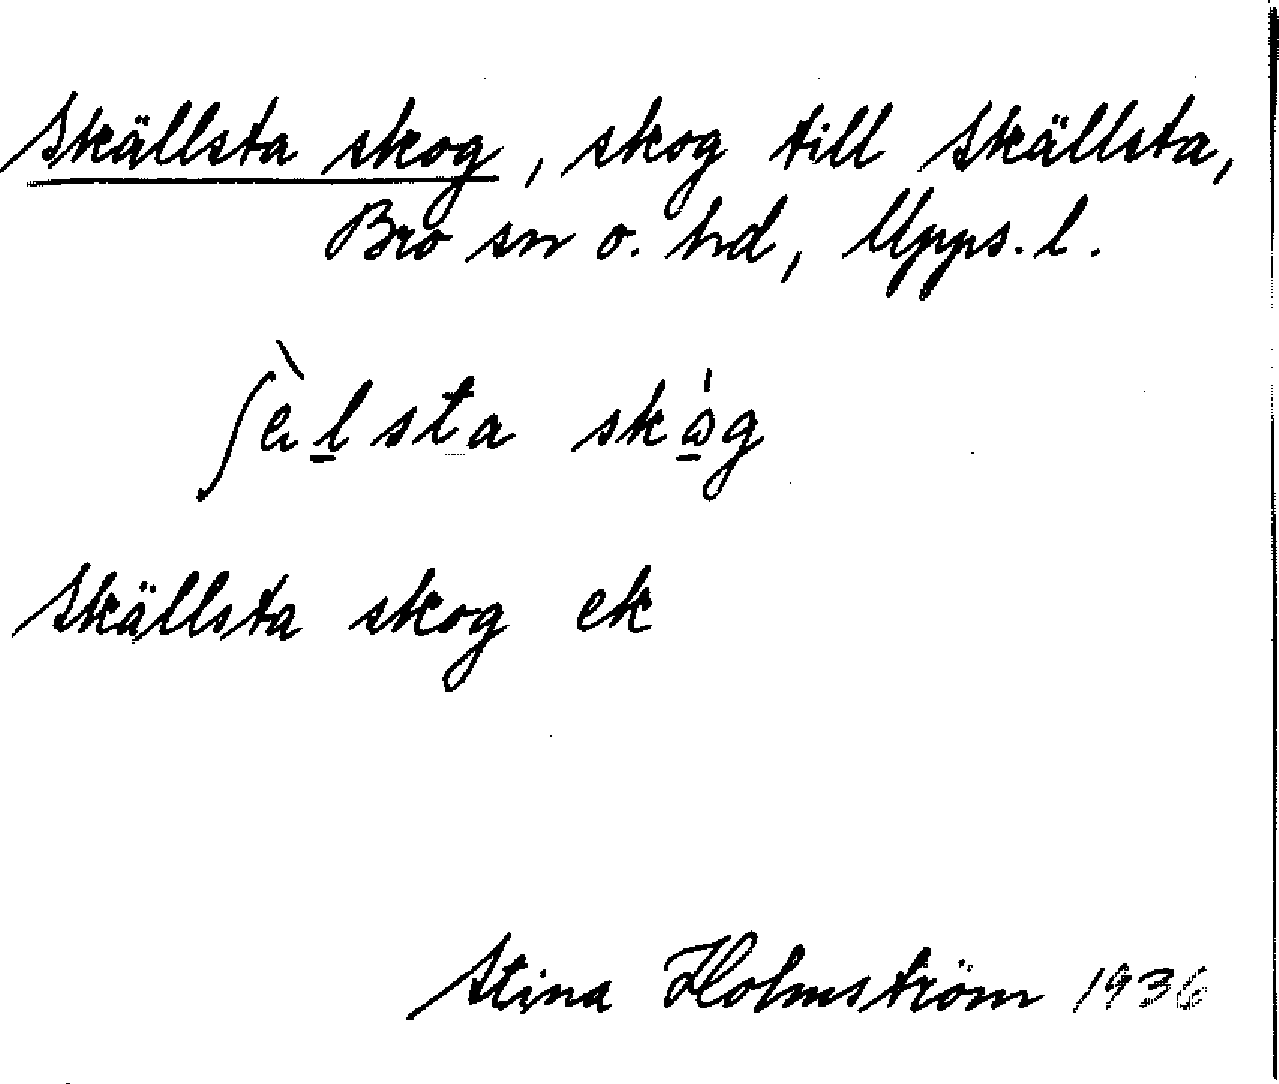 Skällsta skog, skog till Skällsta,
Bro sn o. hd, Upps. l.
ʃὲl̲sta skώ̲g
Skällsta skog ek
Stina Holmström 1936